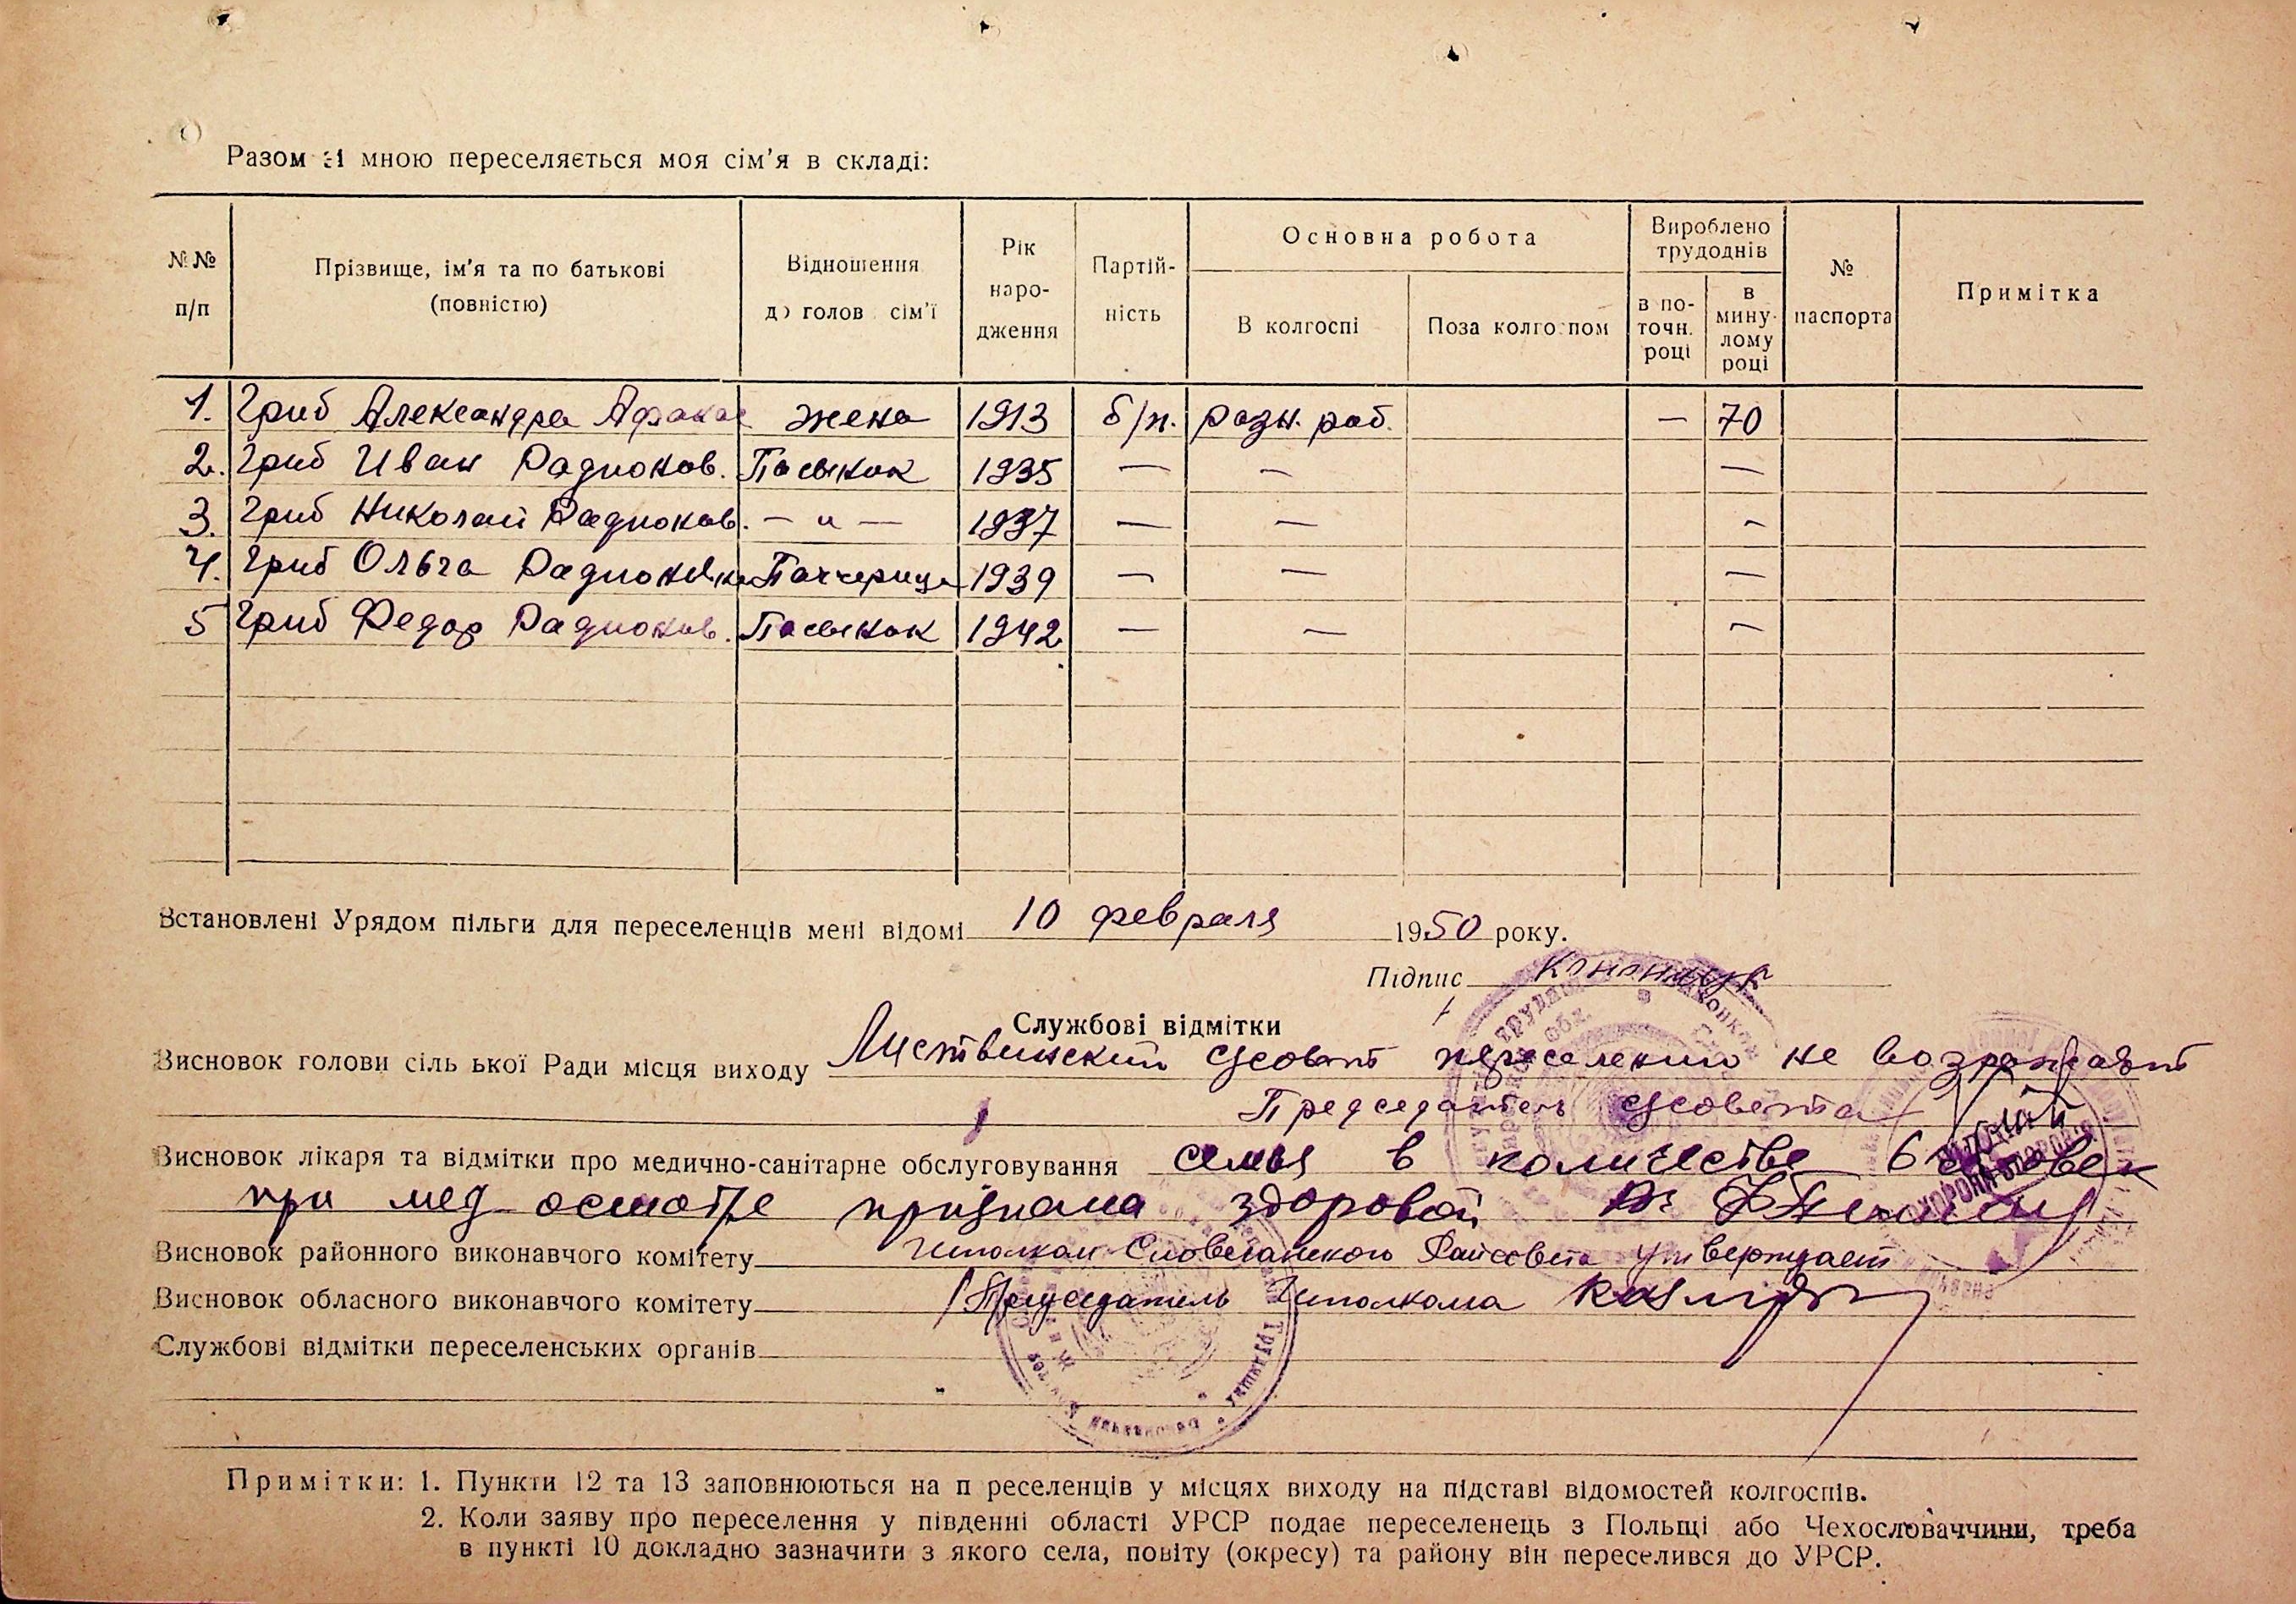 Разом зі мною переселяється моя сім'я в складі:
№№ п/п
Прізвище, ім'я та по батькові (повністю)
Відношення до голов сім'ї
Рік народження
Партійність
Основна робота
В колгоспі
Поза колгоспом
Вироблено трудоднів
в поточн. році
в минулому році
№ паспорта
Примітка
1. Гриб Александра Афанас жена 1913 б/п. разн. раб. — 70
2. Гриб Иван Радионов. Пасынок 1935 — — —
3. Гриб Николай Радионов. — " — 1937 — — —
4. Гриб Ольга Падчерица 1939 — — —
5 Гриб Федор Радионов. Пасынок 1942 — — —
Встановлені Урядом пільги для переселенців мені відомі 10 февраля 1950 року.
Підпис
Службові відмітки
Висновок голови сіль ької Ради місця виходу Листвинский с/совет переселению не возражает
Председатель с/совета
Висновок лікаря та відмітки про медично-санітарне обслуговування семья в количестве 6 человек
при мед осмотре признана здоровой
Висновок районного виконавчого комітету Исполком Словечанского Райсовета утверждает
Висновок обласного виконавчого комітету Председатель Исполкома
Службові відмітки переселенських органів
Примітки: 1. Пункти 12 та 13 заповнюються на п реселенців у місцях виходу на підставі відомостей колгоспів.
2. Коли заяву про переселення у південні області УРСР подає переселенець з Польщі або Чехословаччини, треба
в пункті 10 докладно зазначити з якого села, повіту (окресу) та району він переселився до УРСР.